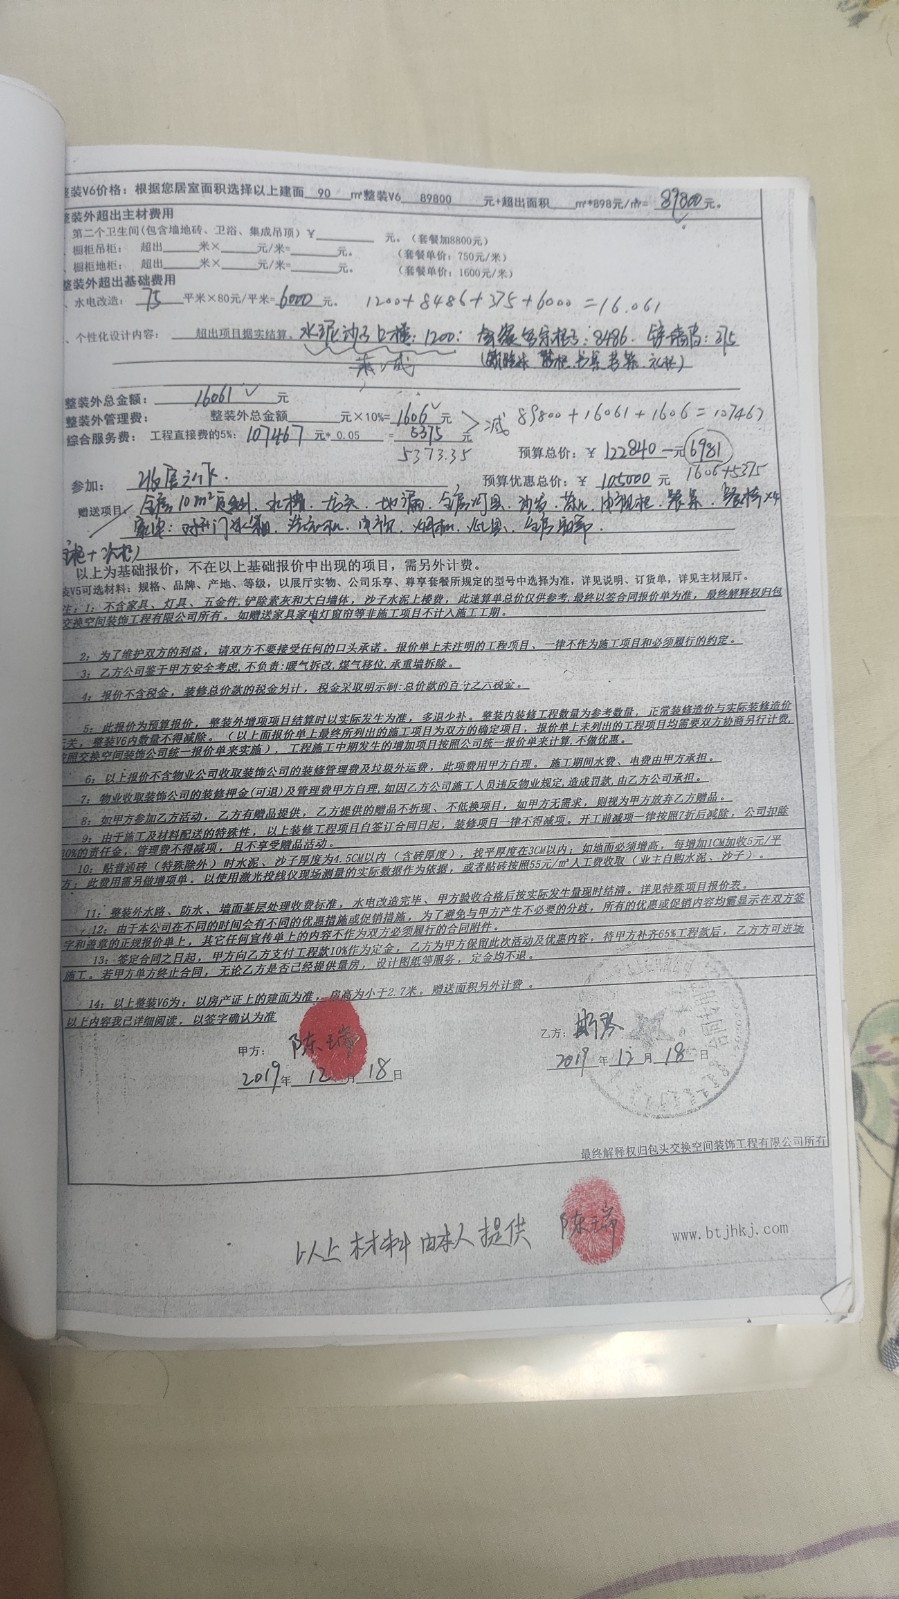 整装V6价格：根据您居室面积选择以上建面 90 ㎡整装V6 89800 元+超出面积 ㎡*898元/㎡= 89800 元。
整装外超出主材费用
第二个卫生间(包含墙地砖、卫浴、集成吊顶) ¥ 元。（套餐加8800元）
橱柜吊柜： 超出 米× 元/米= 元。 （套餐单价：750元/米）
橱柜地柜： 超出 米× 元/米= 元。 （套餐单价：1600元/米）
整装外超出基础费用
水电改造： 75 平米×80元/平米= 6000 元。 1200+8486+375+6000=16.061
、个性化设计内容： 超出项目据实结算。水泥沙子上楼：1200： 8486. 375
整装外总金额： 16061 元
整装外管理费： 整装外总金额 元×10%= 1606 元 减 89800+16061+1606=107467
综合服务费： 工程直接费的5%： 107467 元* 0.05 = 5375 元 预算总价：¥ 122840 元 6981
5373.35 1606+5375
参加： 预算优惠总价：¥ 105000 元
赠送项目： 全房10m² 水槽. 龙头. 地漏.
以上为基础报价，不在以上基础报价中出现的项目，需另外计费。
装V5可选材料：规格、品牌、产地、等级，以展厅实物、公司乐享、尊享套餐所规定的型号中选择为准，详见说明、订货单，详见主材展厅。
注：1：不含家具、灯具、五金件,铲除素灰和大白墙体，沙子水泥上楼费，此速算单总价仅供参考,最终以签合同报价单为准，最终解释权归包
交换空间装饰工程有限公司所有。如赠送家具家电灯窗帘等非施工项目不计入施工工期。
2：为了维护双方的利益，请双方不要接受任何的口头承诺。报价单上未注明的工程项目、一律不作为施工项目和必须履行的约定。
3：乙方公司鉴于甲方安全考虑,不负责:暖气拆改,煤气移位,承重墙拆除。
4：报价不含税金，装修总价款的税金另计，税金采取明示制:总价款的百分之六税金。
5：此报价为预算报价，整装外增项项目结算时以实际发生为准，多退少补。整装内装修工程数量为参考数量，正常装修造价与实际装修造价
无关，整装V6内数量不得减除。（以上面报价单上最终所列出的施工项目为双方的确定项目，报价单上未列出的工程项目均需要双方协商另行计费,
按照交换空间装饰公司统一报价单来实施），工程施工中期发生的增加项目按照公司统一报价单来计算,不做优惠。
6：以上报价不含物业公司收取装饰公司的装修管理费及垃圾外运费，此项费用甲方自理。施工期间水费、电费由甲方承担。
7：物业收取装饰公司的装修押金(可退)及管理费甲方自理,如因乙方公司施工人员违反物业规定,造成罚款,由乙方公司承担。
8：如甲方参加乙方活动，乙方有赠品提供，乙方提供的赠品不折现、不低换项目，如甲方无需求，则视为甲方放弃乙方赠品。
9：由于施工及材料配送的特殊性，以上装修工程项目自签订合同日起，装修项目一律不得减项。开工前减项一律按照7折后减除，公司扣除
30%的责任金，管理费不得减项，且不享受赠品活动。
10：贴普通砖（特殊除外）时水泥、沙子厚度为4.5CM以内（含砖厚度），找平厚度在3CM以内；如地面必须增高，每增加1CM加收5元/平
方；此费用需另做增项单。以使用激光投线仪现场测量的实际数据作为依据，或者贴砖按照55元/㎡人工费收取（业主自购水泥、沙子）。
11：整装外水路、防水、墙面基层处理收费标准，水电改造完毕、甲方验收合格后按实际发生量现时结清。详见特殊项目报价表。
12：由于本公司在不同的时间会有不同的优惠措施或促销措施，为了避免与甲方产生不必要的分歧，所有的优惠或促销内容均需显示在双方签
字和盖章的正规报价单上，其它任何宣传单上的内容不作为双方必须履行的合同附件。
13：签定合同之日起，甲方向乙方支付工程款10%作为定金，乙方为甲方保留此次活动及优惠内容，待甲方补齐65%工程款后，乙方方可进场
施工。若甲方单方终止合同，无论乙方是否已经提供量房、设计图纸等服务，定金均不退。
14：以上整装V6为：以房产证上的建面为准，房高为小于2.7米。赠送面积另外计费。
以上内容我已详细阅读，以签字确认为准
甲方： 陈 乙方：
2019年 12 月 18 日 2019 年 12 月 18 日
最终解释权归包头交换空间装饰工程有限公司所有
以上材料由本人提供 陈
www.btjhkj.com